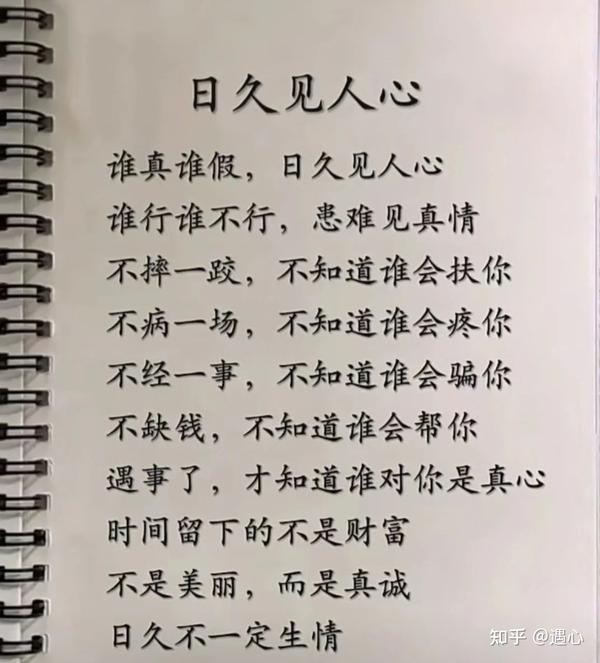 日久见人心
谁真谁假，日久见人心
谁行谁不行，患难见真情
不摔一跤，不知道谁会扶你
不病一场，不知道谁会疼你
不经一事，不知道谁会骗你
不缺钱，不知道谁会帮你
遇事了，才知道谁对你是真心
时间留下的不是财富
不是美丽，而是真诚
日久不一定生情
知乎 @遇心